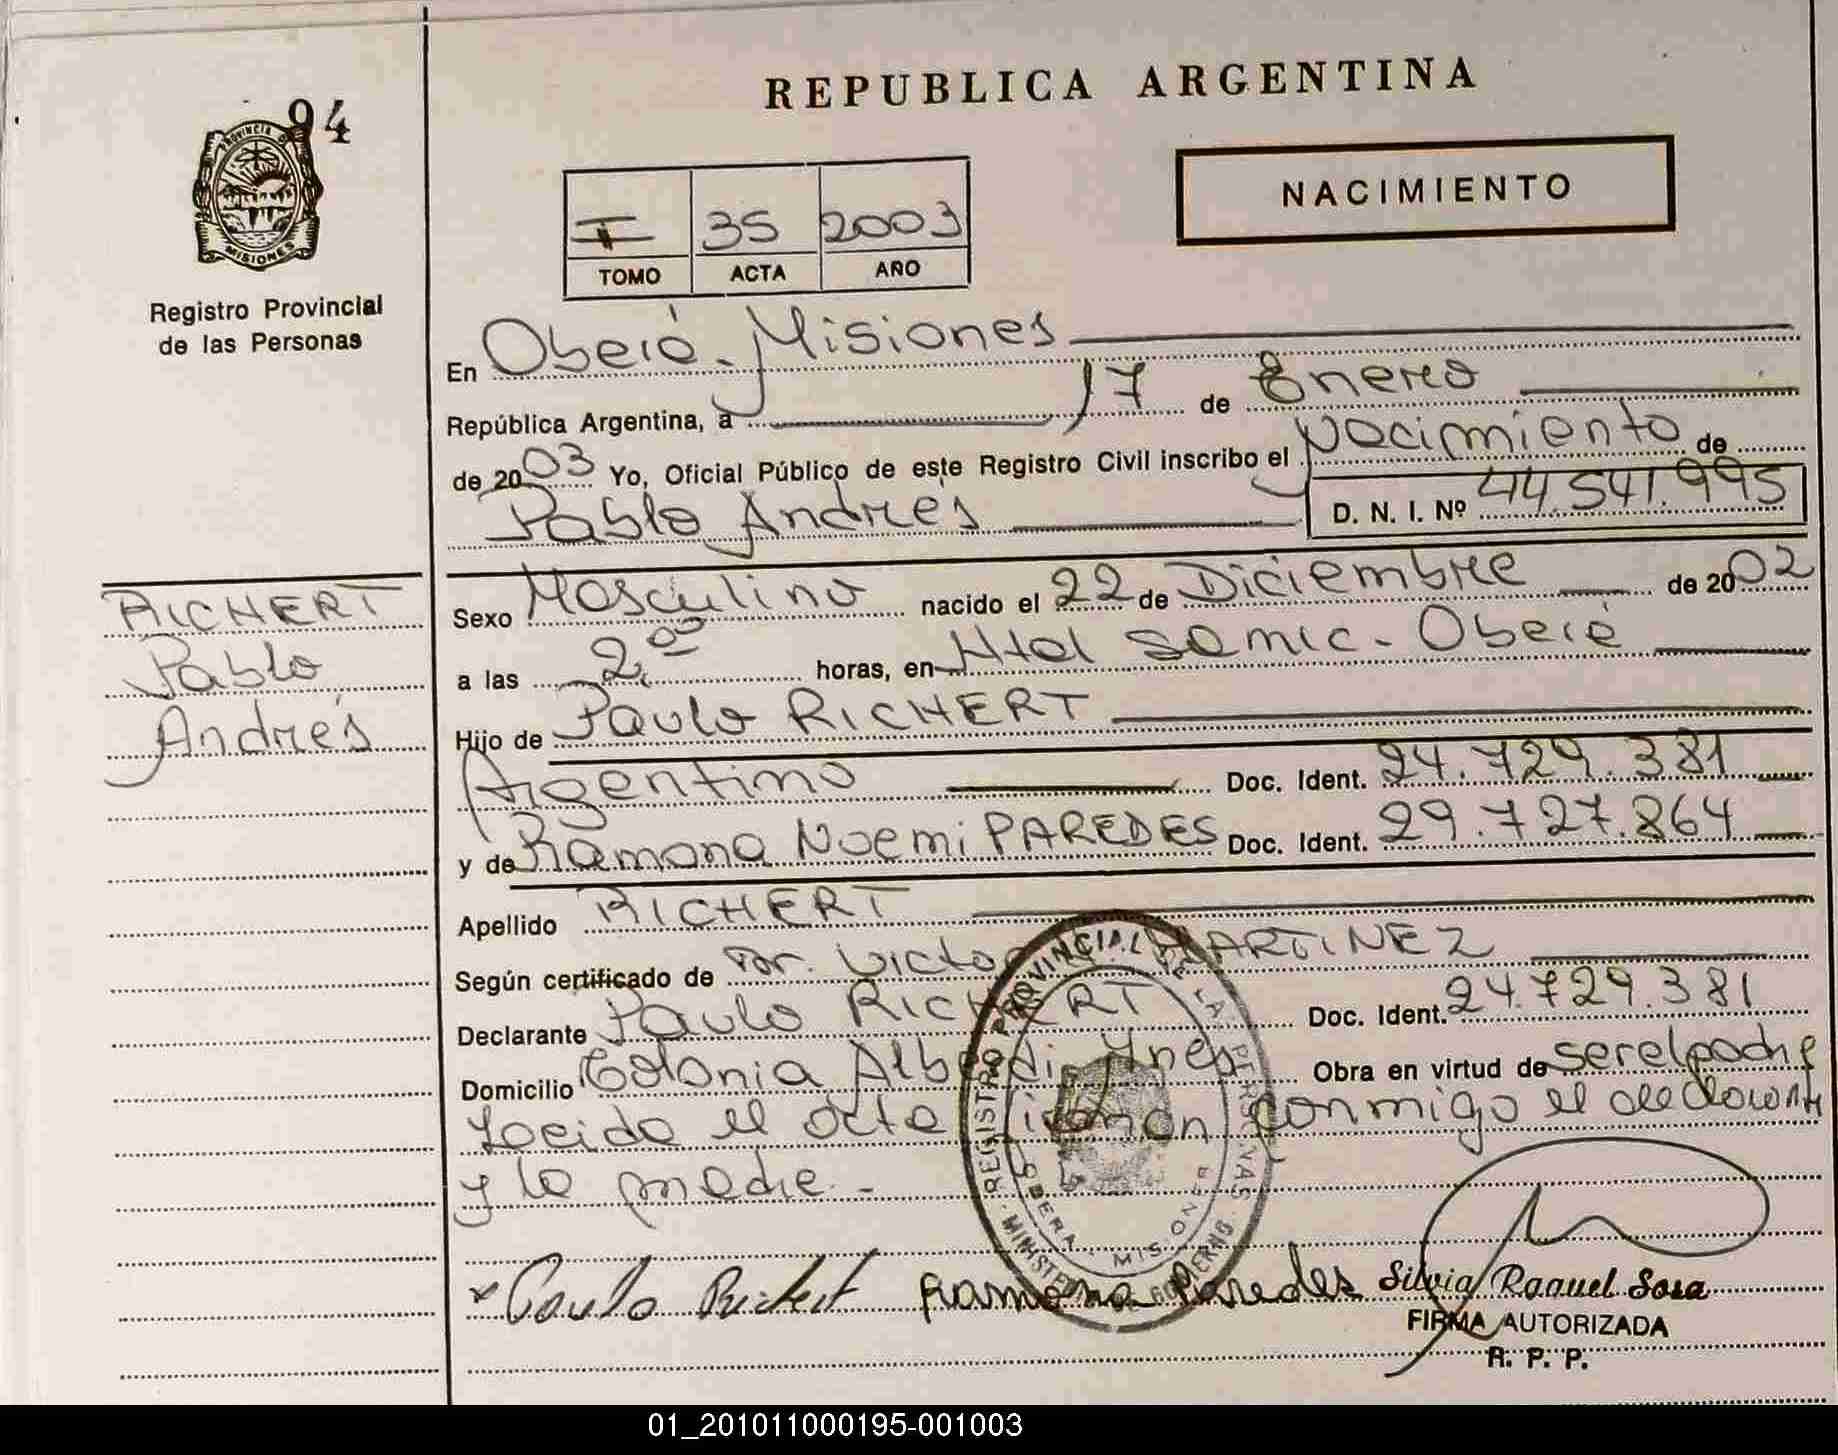 REPUBLICA ARGENTINA
94
PROVINCIA DE
MISIONES
Registro Provincial
de las Personas
NACIMIENTO
I 35 2003
TOMO ACTA AÑO
En Oberá. Misiones
República Argentina, a 17 de Enero
de 2003 Yo, Oficial Público de este Registro Civil inscribo el Nacimiento de
Pablo Andrés D. N. I. Nº 44.541.995
RICHERT
Pablo
Andrés
Sexo Masculino nacido el 22 de Diciembre de 2002
a las 2,00 horas, en Htal Samic - Oberá
Hijo de Paulo RICHERT
Argentino Doc. Ident. 24.729.381
y de Ramona Noemi PAREDES Doc. Ident. 29.727.864
Apellido RICHERT
Según certificado de Dr. Victor MARTINEZ
Declarante Paulo RICHERT Doc. Ident. 24.729.381
Domicilio Colonia Alberdi, Mnes Obra en virtud de ser el padre
Leida el acta firman conmigo el declarante
y la madre.-
REGISTRO PROVINCIAL DE LAS PERSONAS
MINISTERIO GOBIERNO
OBERA MISIONES
Paulo Richert Ramona Paredes Silvia Raquel Sosa
FIRMA AUTORIZADA
R. P. P.
01_201011000195-001003